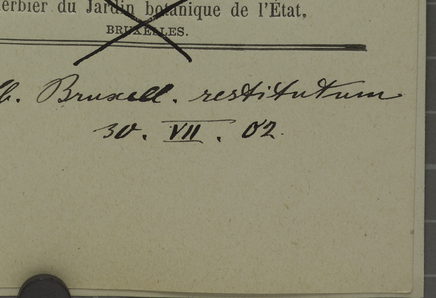 erbier du Jardin botanique de l'État,
BRUXELLES.
b. Bruxell. restitutum
30. VII. 02.